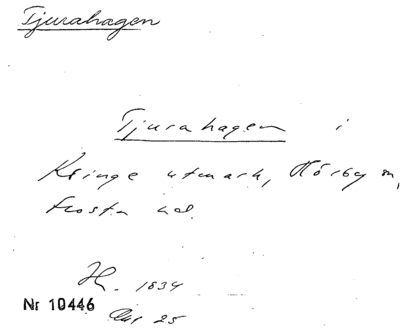 Tjurahagen
Tjurahagen i
Klinge utmark, Hörby sn,
Frosta hd.
H. 1834
Nr 10446
25